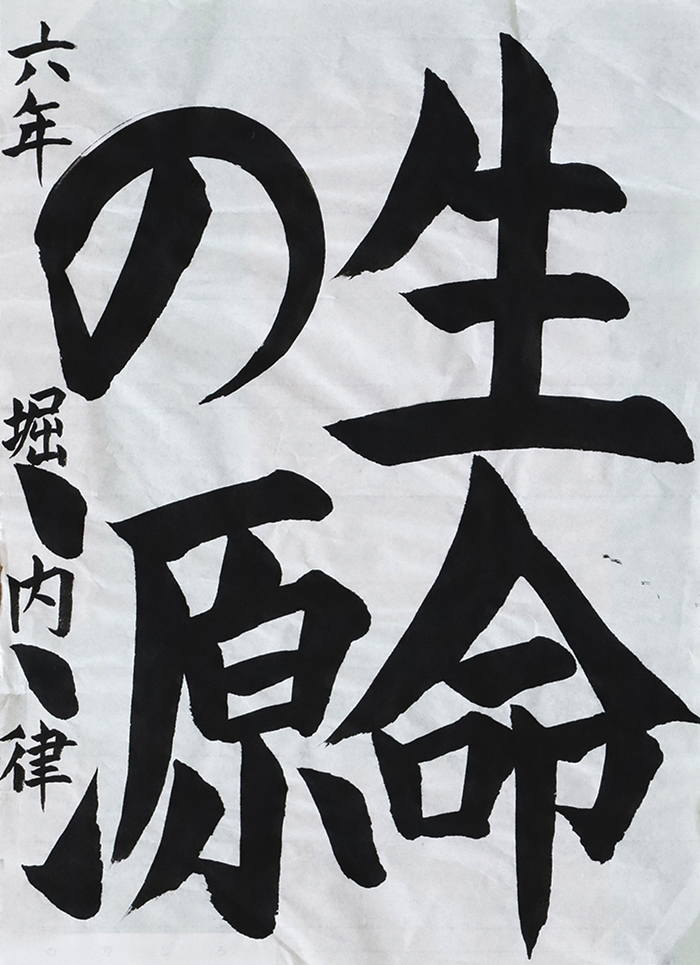 生命
の源
六年 堀内律